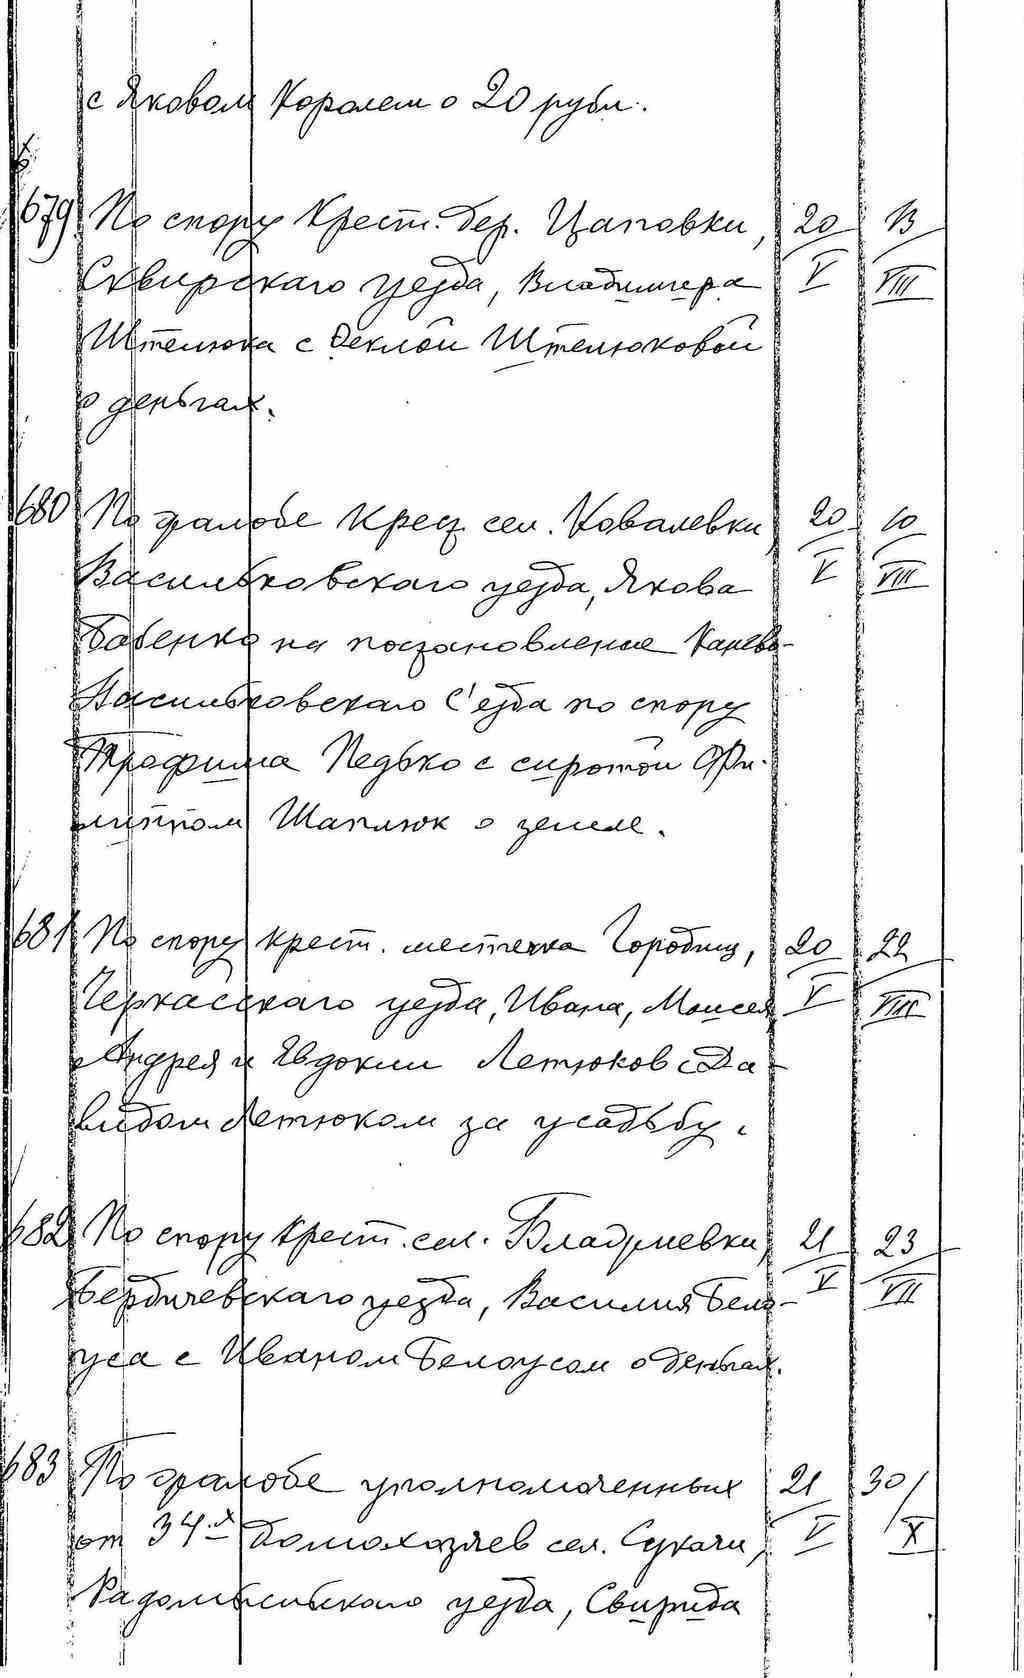 с Яковом Королем о 20 рубл.
679 По спору крест. дер. Цаповки, 20/V 13/VIII
Сквирскаго уезда, Владимира
Штелюка с Феклой Штелюковой
о деньгах.
680 По жалобе крест. сел. Ковалевки, 20/V 10/VIII
Васильковскаго уезда, Якова
Бабенко на постановление Канево-
Васильковскаго С'езда по спору
Трофима Педько с сиротой Фи-
липпом Шаплюк о земле.
681 По спору крест. местечка Городищ, 20/V 22/VIII
Черкасскаго уезда, Ивана, Моисея,
Андрея и Явдокии Летюков с Да-
видом Летюком за усадьбу.
682 По спору крест. сел. 21/V 23/VII
Бердичевскаго уезда, Василия Бело-
уса с Иваном Белоусом о деньгах.
683 По жалобе уполномоченных 21/V 30/X
от 34-х домохозяев сел. Сукачи,
Радомысльскаго уезда, Свирида